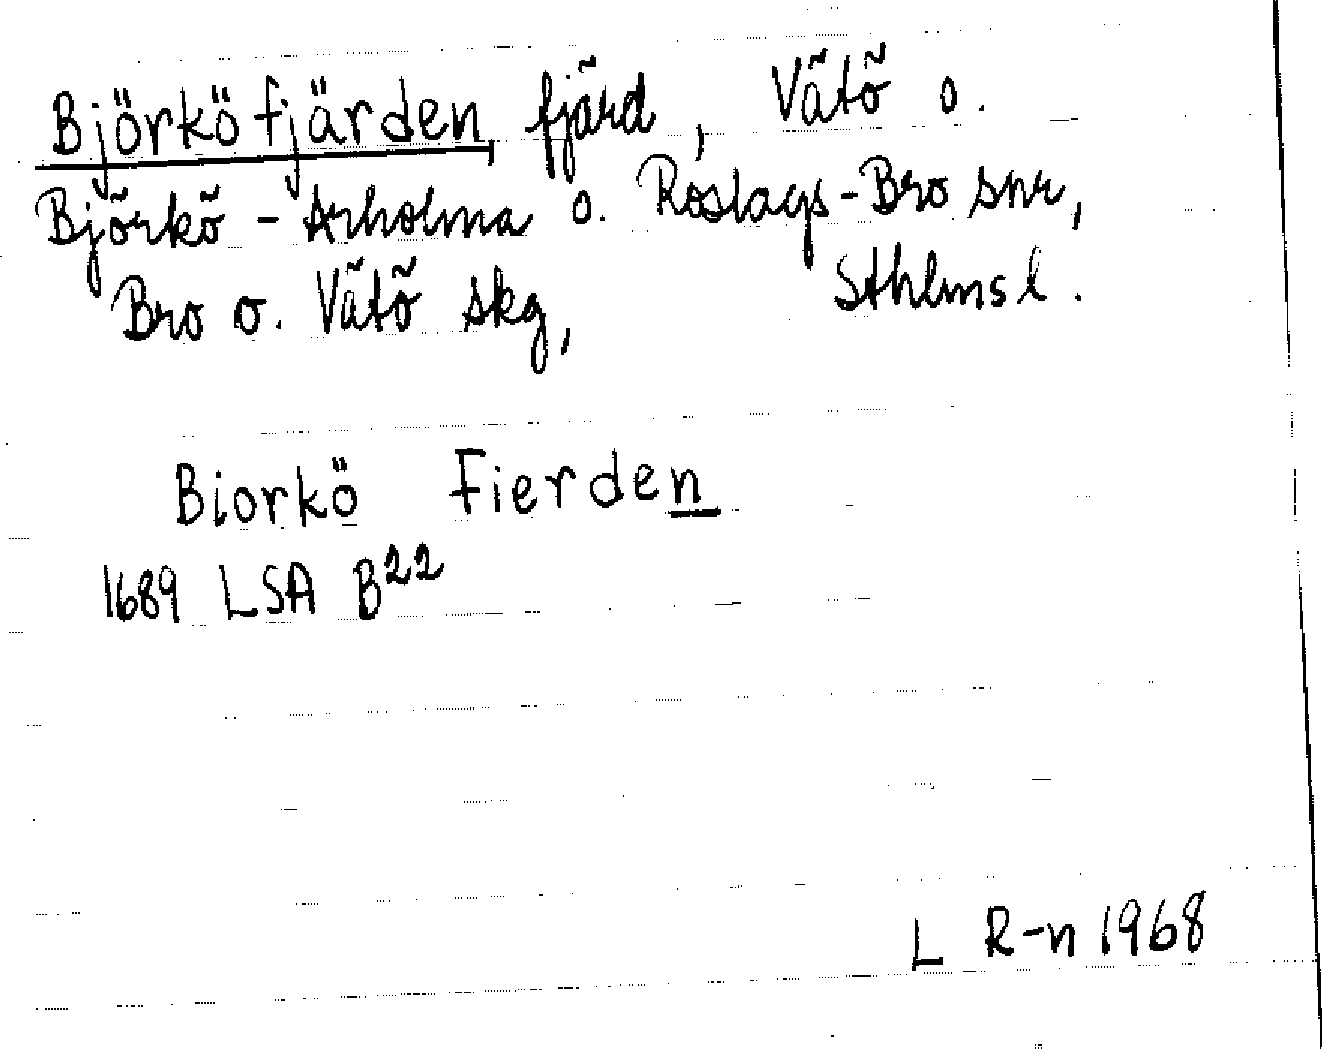 Björköfjärden, fjärd, Vätö o.
Björkö-Arholma o. Roslags-Bro snr,
Bro o. Vätö skg, Sthlmsl.
Biorkö Fierden
1689 LSA B22
L R-n 1968